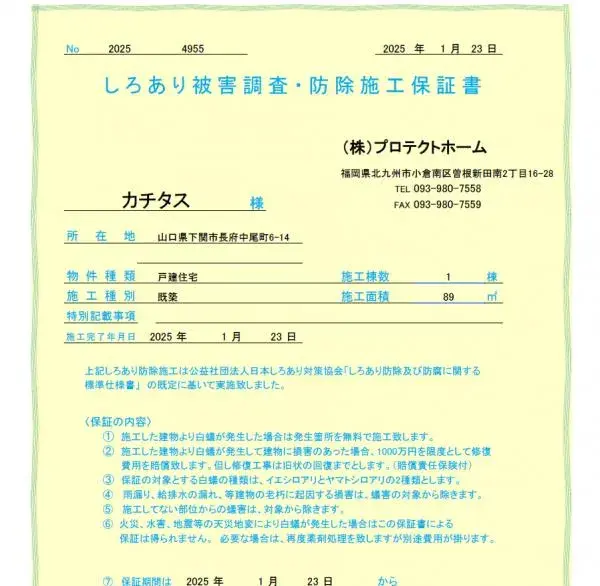 No 2025 4955 2025 年 1 月 23 日
しろあり被害調査・防除施工保証書
(株)プロテクトホーム
福岡県北九州市小倉南区曽根新田南2丁目16-28
TEL 093-980-7558
カチタス 様
FAX 093-980-7559
所在地 山口県下関市長府中尾町6-14
物件種類 戸建住宅 施工棟数 1 棟
施工種別 既築 施工面積 89 ㎡
特別記載事項
施工完了年月日 2025 年 1 月 23 日
上記しろあり防除施工は公益社団法人日本しろあり対策協会「しろあり防除及び防腐に関する
標準仕様書」 の既定に基いて実施致しました。
〈保証の内容〉
① 施工した建物より白蟻が発生した場合は発生箇所を無料で施工致します。
② 施工した建物より白蟻が発生して建物に損害のあった場合、1000万円を限度として修復
費用を賠償致します。但し修復工事は旧状の回復までとします。(賠償責任保険付)
③ 保証の対象とする白蟻の種類は、イエシロアリとヤマトシロアリの2種類とします。
④ 雨漏り、給排水の漏れ、等建物の老朽に起因する損害は、蟻害の対象から除きます。
⑤ 施工してない部位からの蟻害は、対象から除きます。
⑥ 火災、水害、地震等の天災地変により白蟻が発生した場合はこの保証書による
保証は得られません。 必要な場合は、再度薬剤処理を致しますが別途費用が掛ります。
⑦ 保証期間は 2025 年 1 月 23 日 から